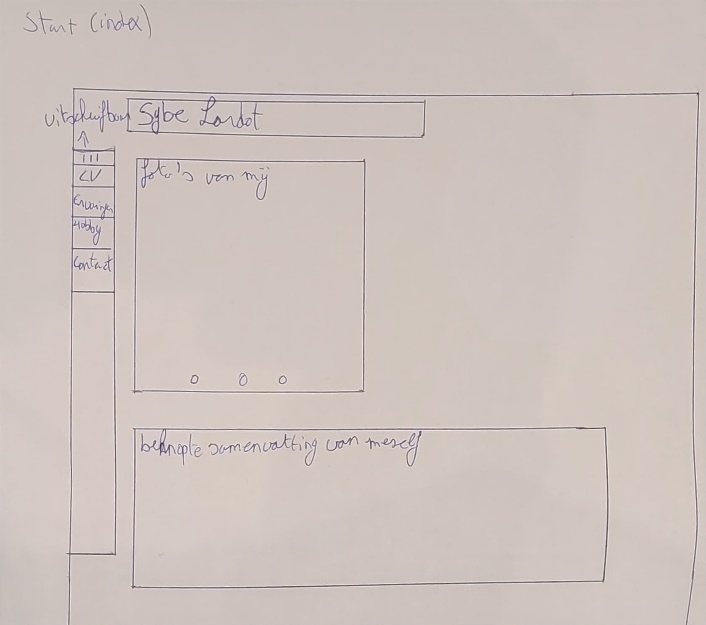 Start (index)
uitschuifbar
Sybe Lordot
CV
Ervaringen
Hobby
Contact
foto's van mij
beknopte samenvatting van meself